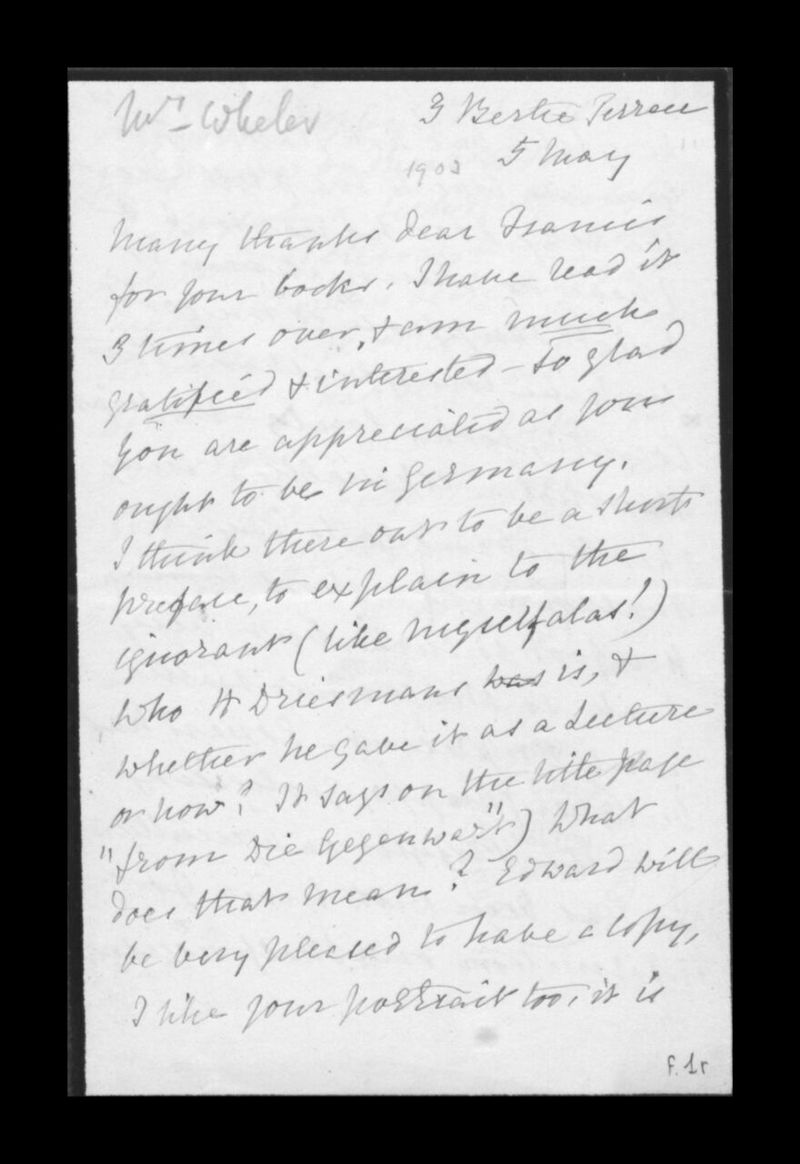 Mrs Wheler
3 Bertie Terrace
1903 5 May
Many thanks dear Francis
for your books. I have read it
3 times over, & am much
gratified & interested - so glad
you are appreciated as you
ought to be in Germany.
I think there out to be a short
preface, to explain to the
ignorant (like myself alas!)
who H Driesmans was is, &
whether he gave it as a Lecture
or how? It says on the title page
"from Die Gegenwart") What
does that mean? Edward will
be very pleased to have a copy,
I like your portrait too, it is
f. 1r